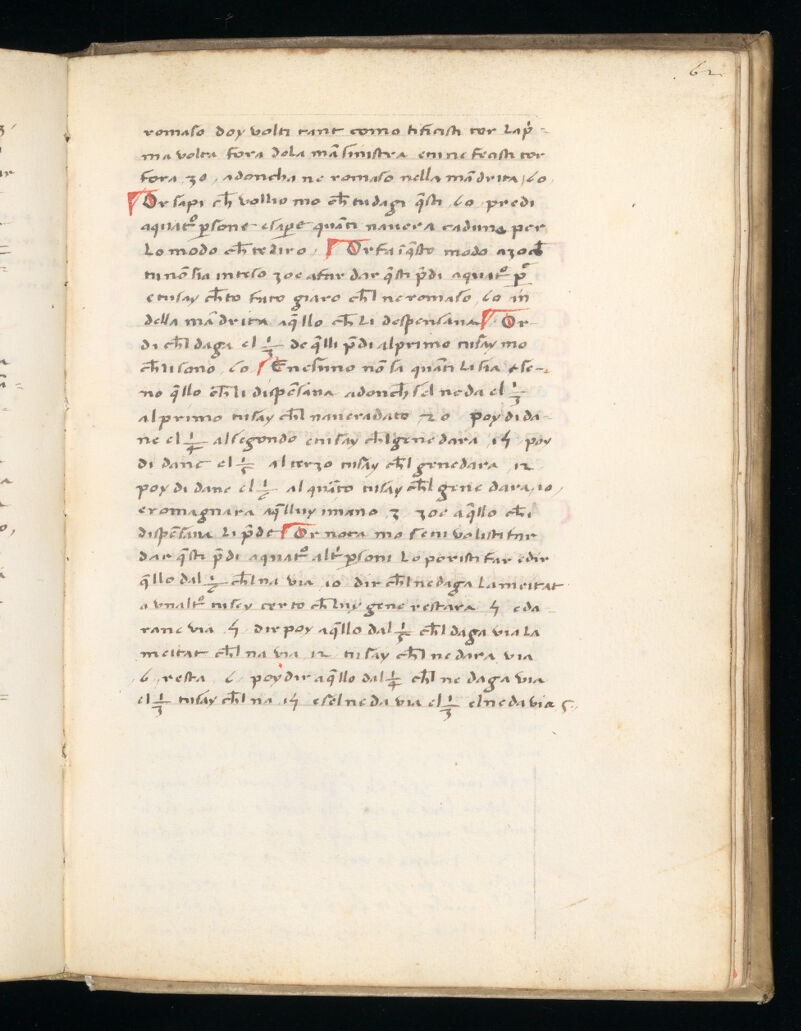 62
romaso doy volti tant como tificisti tor la pr̄i-
ma volta fora dola mā sinistra e tu ne fecisti tor
fora 30 adoncha ne romaso nella mā drita 60
Or sapi ch̄ vollio mo ch̄ tu dagi q̄sti 60 predi
a quatr̊ p̱sone e sap̱e quanti navera caduna per
lo modo ch̄ te diro Or fa ī q̄sto modo a zo ch̄
tu nō sia inteso zoe a far dar q̄sti p̄di a quatr̊ p̱
e tu say ch̄ to fato giaro ch̄l ne romaso 60 in
della mā drita a q̄llo ch̄ li despensana Or
di ch̄l daga el 1/3 de q̄lli p̄di al primo tu say mo
ch̄ li sono 60 E nesuno nō sa quāti li sia e se-
no q̄llo ch̄ li dispēsana adonch̄ sel ne da el 1/3
al primo tu say ch̄l navera dato 20 poy di da-
ne el 1/4 al segondo e tu say ch̄l gene dara 15 poy
di dane el 1/5 al terzo tu say ch̄l gene dara 12
poy di dane el 1/6 al quarto tu say ch̄l gene dara 10
e romagnara a q̄lluy in mano 3 zoe a q̄llo ch̄e
dispēsana li p̄de Or nota mo se tu volisti far
dar q̄sti p̄di a quatr̊ altr̄ p̱soni lo poristi far e dir
q̄llo dal 1/6 ch̄l na via 10 dir ch̄l ne daga la meitat
a un altr̊ tu sey certo ch̄ luy gene restara 5 e da-
rane via 5 dir poy a q̄llo dal 1/5 ch̄l daga via la
meitat ch̄l na via 12 tu say ch̄l ne dara via
6 resta 6 poy dir a q̄llo dal 1/4 ch̄l ne daga via
el 1/3 tu say ch̄l na 15 e sel ne da via el 1/3 el ne da via 5